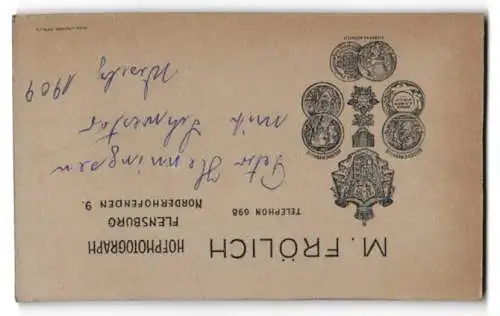 M. FRÖLICH
HOFPHOTOGRAPH
FLENSBURG
NORDERHOFENDEN 9.
TELEPHON 698
Peter Henningsen
mit Schwester
1909